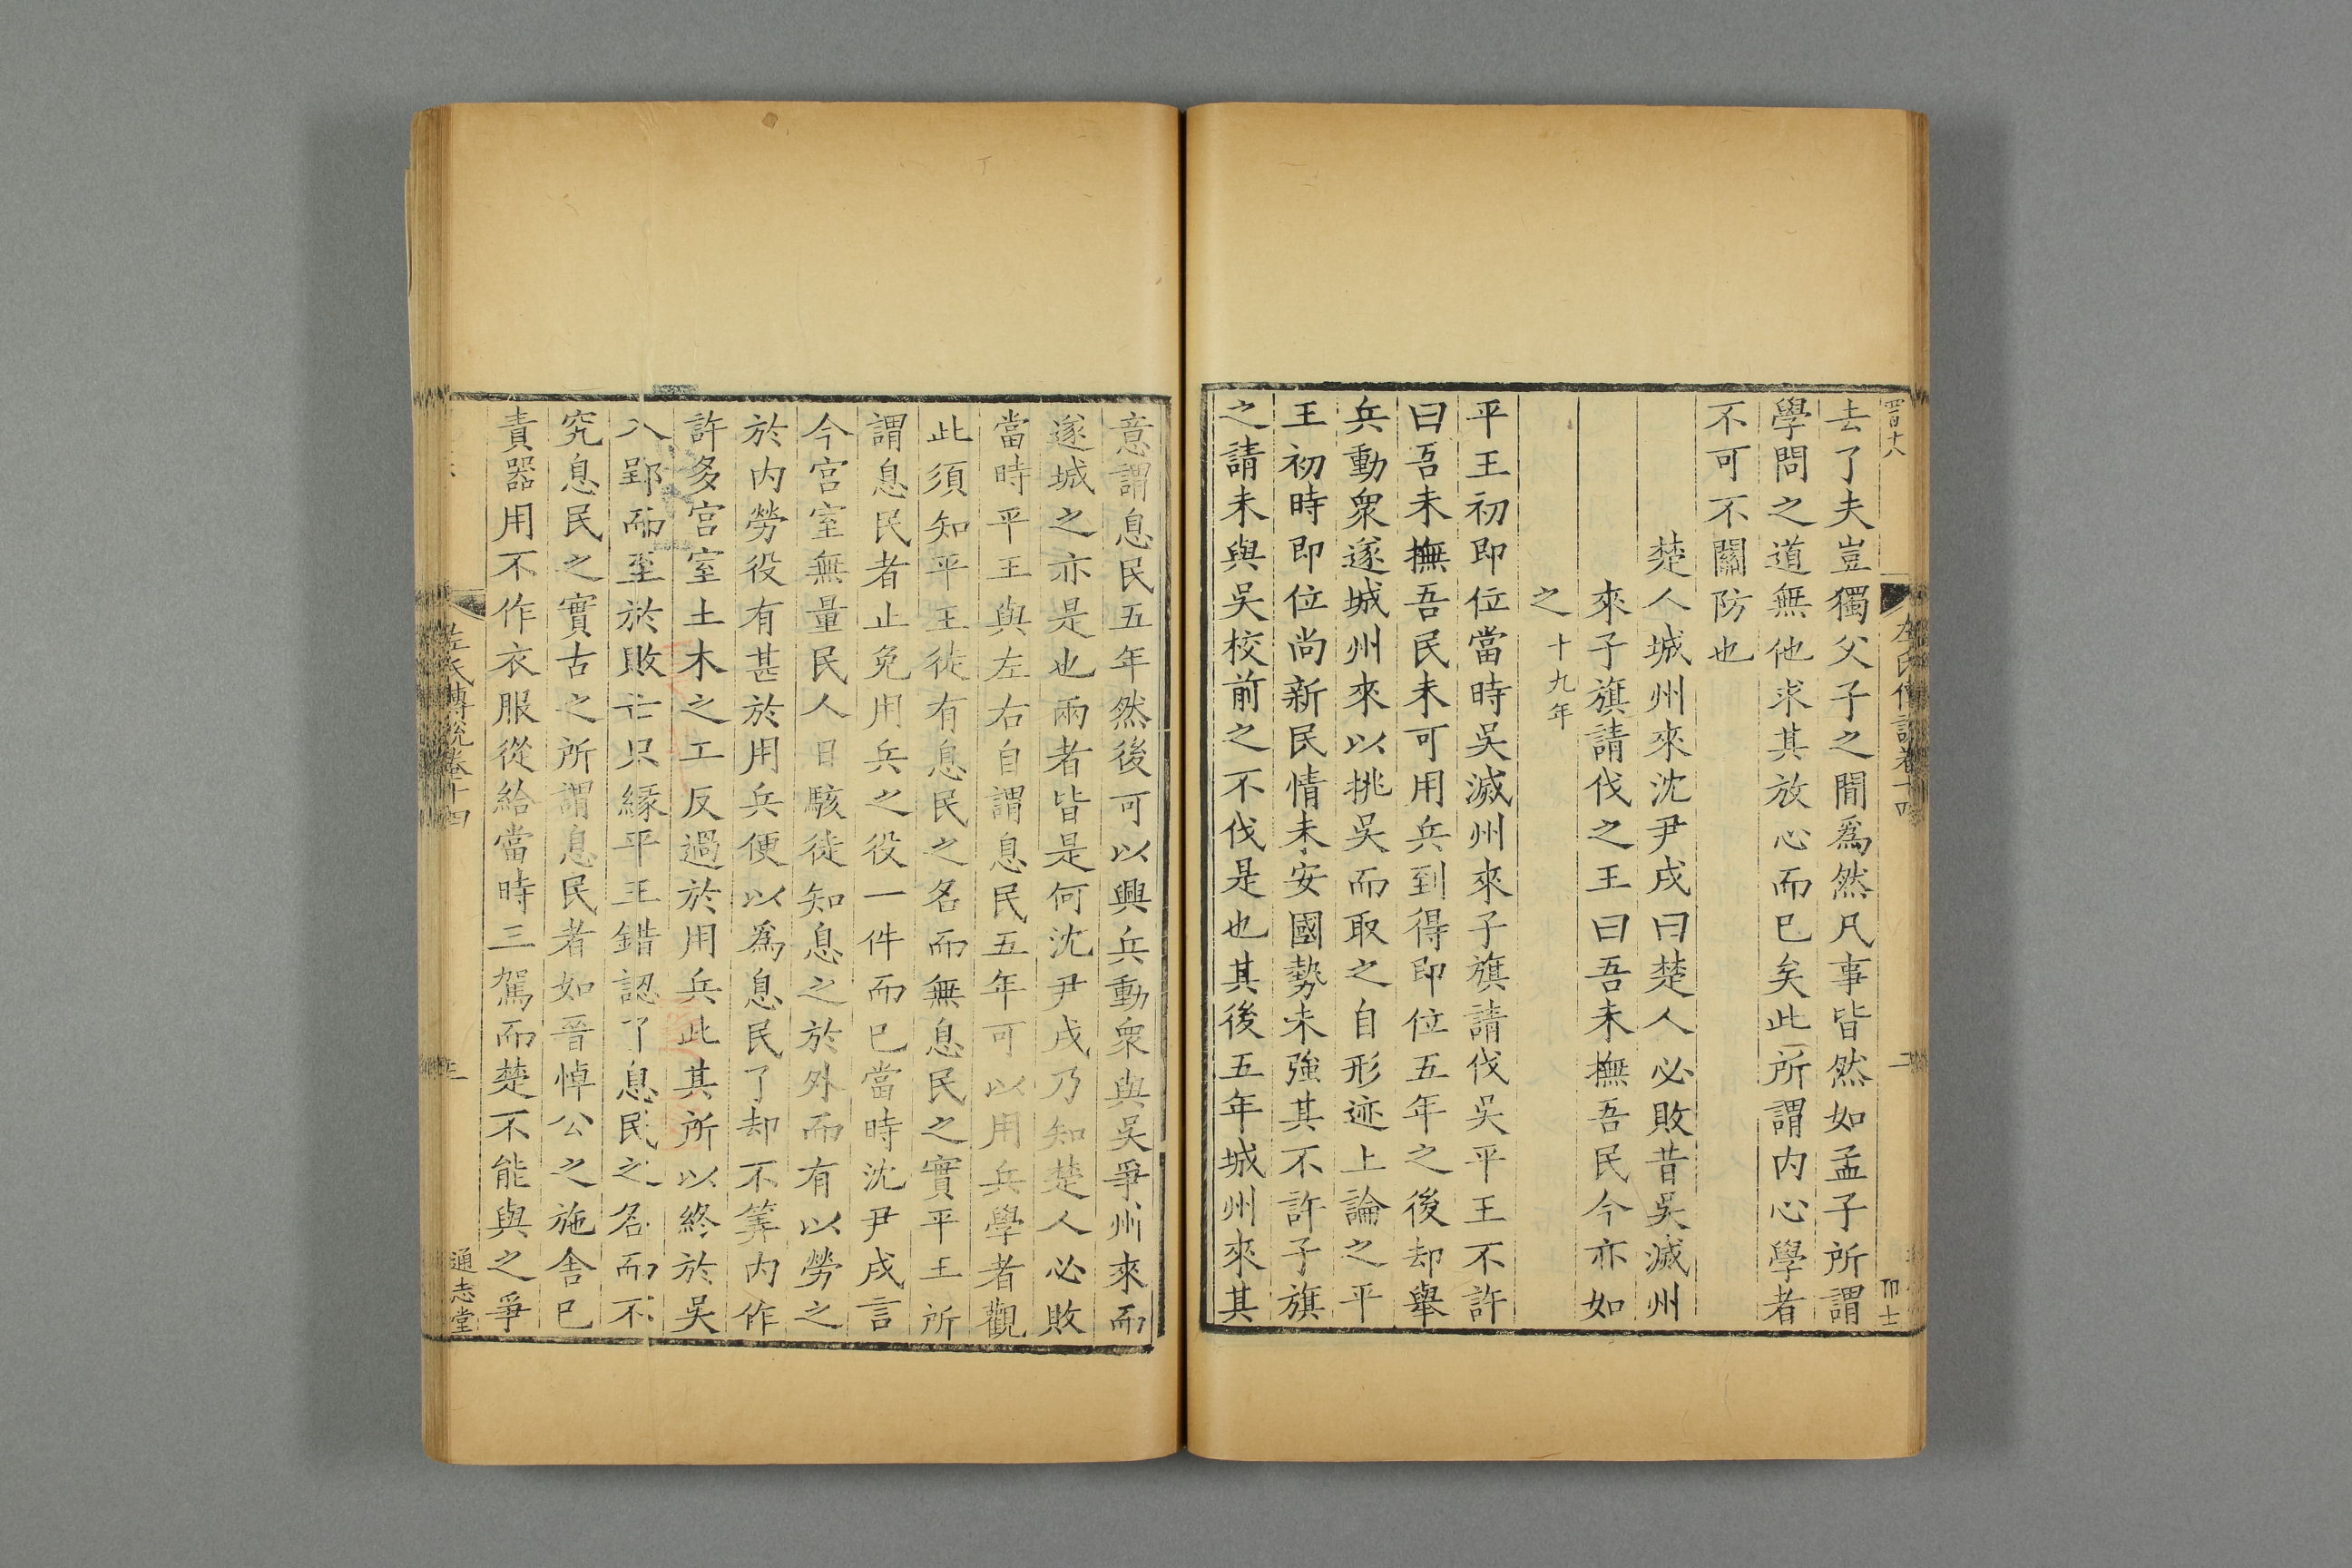 四百十八
左氏傳說卷十四
二
去了夫豈獨父子之閒爲然凡事皆然如孟子所謂
學問之道無他求其放心而已矣此所謂内心學者
不可不關防也
楚人城州來沈尹戌曰楚人必敗昔吳滅州
來子旗請伐之王曰吾未撫吾民今亦如
之十九年
平王初即位當時吳滅州來子旗請伐吳平王不許
曰吾未撫吾民未可用兵到得即位五年之後却舉
兵動衆遂城州來以挑吳而取之自形迹上論之平
王初時即位尚新民情未安國勢未強其不許子旗
之請未與吳校前之不伐是也其後五年城州來其
意謂息民五年然後可以興兵動衆與吳爭州來而
遂城之亦是也兩者皆是何沈尹戌乃知楚人必敗
當時平王與左右自謂息民五年可以用兵學者觀
此須知平王徒有息民之名而無息民之實平王所
謂息民者止免用兵之役一件而已當時沈尹戌言
今宮室無量民人日駭徒知息之於外而有以勞之
於内勞役有甚於用兵便以爲息民了却不筭内作
許多宮室土木之工反過於用兵此其所以終於吳
入郢而至於敗亡只緣平王錯認了息民之名而不
究息民之實古之所謂息民者如晉悼公之施舍已
責器用不作衣服從給當時三駕而楚不能與之爭
左氏傳說卷十四
通志堂